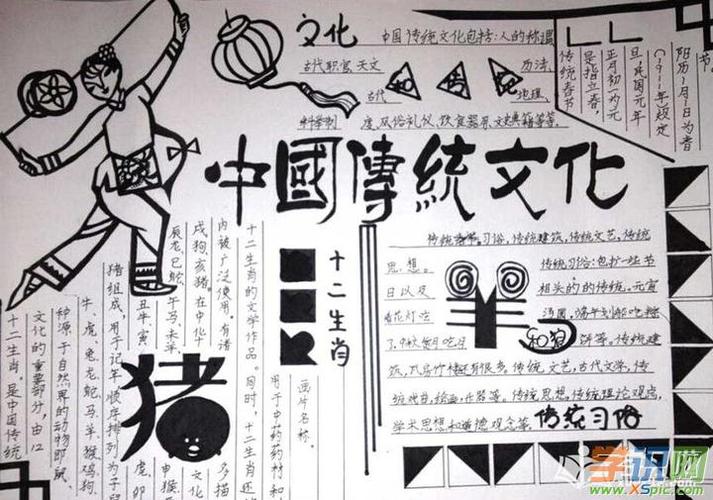 文化
中国传统文化包括:人的称谓
古代职官天文
历法,
古代
地理,
科举制
度,风俗礼仪,饮食器用,文史典籍等等,
节。
阳历1月1日为春
(1911年)规定
旦,民国元年
正月初一为元
是指立春,
传统春节
中國傳統文化
十二生肖
传统习俗,传统建筑,传统文艺,传统
思想。
传统习俗:包扩一些节
日以及
相关的的传统。元宵
看花灯吃
汤圆,端午划船吃粽
羊
和狼
饼等,传统建
传统文艺,古代文学,传
传统思想,传统理论观点,
学术思想和道德观念等。
传统习俗
内被广泛使用,有诸
戌狗,亥猪,在中华
辰龙巳蛇,午马,未羊
丑牛,寅
猪组成,用于记年,顺序排列为子鼠
牛、虎、兔龙蛇马羊猴鸡狗
种源于自然界的动物即鼠、
文化的重要部分,由12
十二生肖,是中国传统
猪
十二生肖的文学作品。同时,十二生肖还
用于中药药材和
画片名称。
学识网
www.XSpic.com